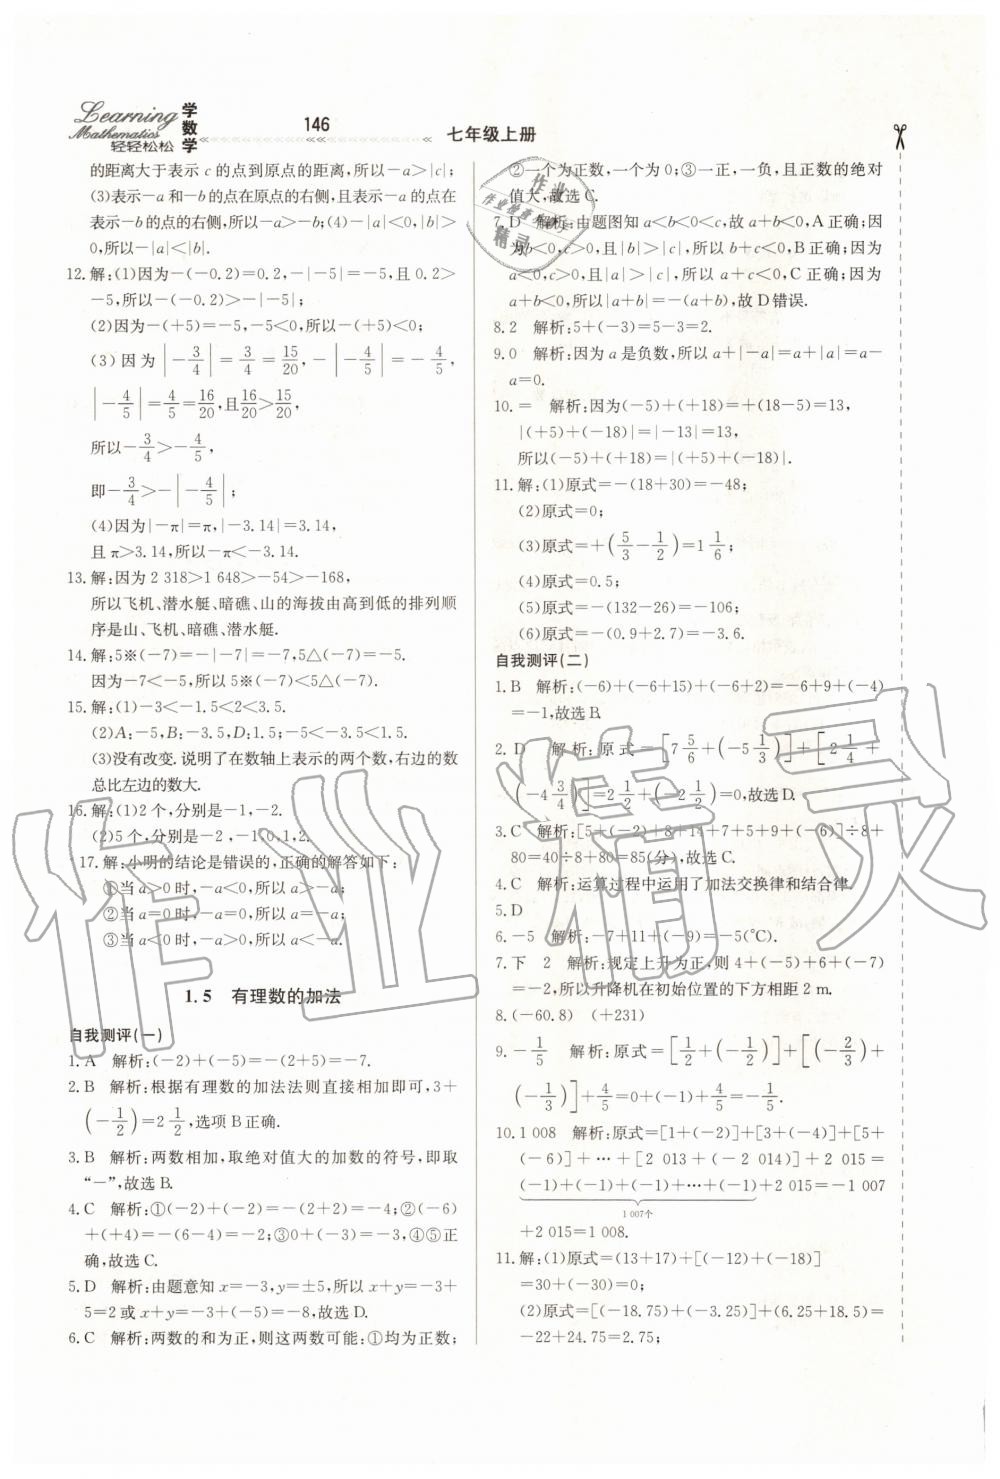 Learning
Mathematics
轻轻松松
学数学
146
七年级上册
的距离大于表示 c 的点到原点的距离,所以-a>|c|;
(3)表示-a和-b的点在原点的右侧,且表示-a的点在
表示-b的点的右侧,所以-a>-b;(4)-|a|<0,|b|>
0,所以-|a|<|b|.
12.解:(1)因为-(-0.2)=0.2,-|-5|=-5,且 0.2>
-5,所以-(-0.2)>-|-5|;
(2)因为-(+5)=-5,-5<0,所以-(+5)<0;
(3) 因为|-3/4|=3/4=15/20,-|-4/5|=-4/5,
|-4/5|=4/5=16/20,且16/20>15/20,
所以-3/4>-4/5,
即-3/4>-|-4/5|;
(4)因为|-π|=π,|-3.14|=3.14,
且 π>3.14,所以-π<-3.14.
13.解:因为 2 318>1 648>-54>-168,
所以飞机、潜水艇、暗礁、山的海拔由高到低的排列顺
序是山、飞机、暗礁、潜水艇.
14.解:5※(-7)=-|-7|=-7,5△(-7)=-5.
因为-7<-5,所以 5※(-7)<5△(-7).
15.解:(1)-3<-1.5<2<3.5.
(2)A:-5,B:-3.5,D:1.5;-5<-3.5<1.5.
(3)没有改变.说明了在数轴上表示的两个数,右边的数
总比左边的数大.
16.解:(1)2个,分别是-1,-2.
(2)5个,分别是-2,-1,0,1,2.
17.解:小明的结论是错误的,正确的解答如下:
①当 a>0 时,-a<0,所以 a>-a.
②当 a=0 时,-a=0,所以 a=-a.
③当 a<0 时,-a>0,所以 a<-a.
1.5 有理数的加法
自我测评(一)
1.A 解析:(-2)+(-5)=-(2+5)=-7.
2.B 解析:根据有理数的加法法则直接相加即可,3+
(-1/2)=2 1/2,选项 B 正确.
3.B 解析:两数相加,取绝对值大的加数的符号,即取
“-”,故选 B.
4.C 解析:①(-2)+(-2)=-(2+2)=-4;②(-6)
+(+4)=-(6-4)=-2;③0+(-3)=-3,④⑤正
确,故选 C.
5.D 解析:由题意知 x=-3,y=±5,所以 x+y=-3+
5=2或 x+y=-3+(-5)=-8,故选 D.
6.C 解析:两数的和为正,则这两数可能:①均为正数;
②一个为正数,一个为0;③一正,一负,且正数的绝对
值大,故选 C.
7.D 解析:由题图知 a<b<0<c,故 a+b<0,A 正确;因
为b<0,c>0,且|b|>|c|,所以 b+c<0,B 正确;因为
a<0,c>0,且|a|>|c|,所以 a+c<0,C 正确;因为
a+b<0,所以|a+b|=-(a+b),故 D 错误.
8.2 解析:5+(-3)=5-3=2.
9.0 解析:因为 a 是负数,所以 a+|-a|=a+|a|=a-
a=0.
10.= 解析:因为(-5)+(+18)=+(18-5)=13,
|(+5)+(-18)|=|-13|=13,
所以(-5)+(+18)=|(+5)+(-18)|.
11.解:(1)原式=-(18+30)=-48;
(2)原式=0;
(3)原式=+(5/3-1/2)=1 1/6;
(4)原式=0.5;
(5)原式=-(132-26)=-106;
(6)原式=-(0.9+2.7)=-3.6.
自我测评(二)
1.B 解析:(-6)+(-6+15)+(-6+2)=-6+9+(-4)
=-1,故选 B.
2.D 解析:原式=[7 5/6+(-5 1/3)]+[2 1/4+
(-4 3/4)]=2 1/2+(-2 1/2)=0,故选 D.
3.C 解析:[5+(-2)+8+14+7+5+9+(-6)]÷8+
80=40÷8+80=85(分),故选 C.
4.C 解析:运算过程中运用了加法交换律和结合律.
5.D
6.-5 解析:-7+11+(-9)=-5(℃).
7.下 2 解析:规定上升为正,则 4+(-5)+6+(-7)
=-2,所以升降机在初始位置的下方相距 2 m.
8.(-60.8) (+231)
9.-1/5 解析:原式=[1/2+(-1/2)]+[(-2/3)+
(-1/3)]+4/5=0+(-1)+4/5=-1/5.
10.1 008 解析:原式=[1+(-2)]+[3+(-4)]+[5+
(-6)]+…+[2 013+(-2 014)]+2 015=
(-1)+(-1)+(-1)+…+(-1)+2 015=-1 007
1 007个
+2 015=1 008.
11.解:(1)原式=(13+17)+[(-12)+(-18)]
=30+(-30)=0;
(2)原式=[(-18.75)+(-3.25)]+(6.25+18.5)=
-22+24.75=2.75;
作业精灵